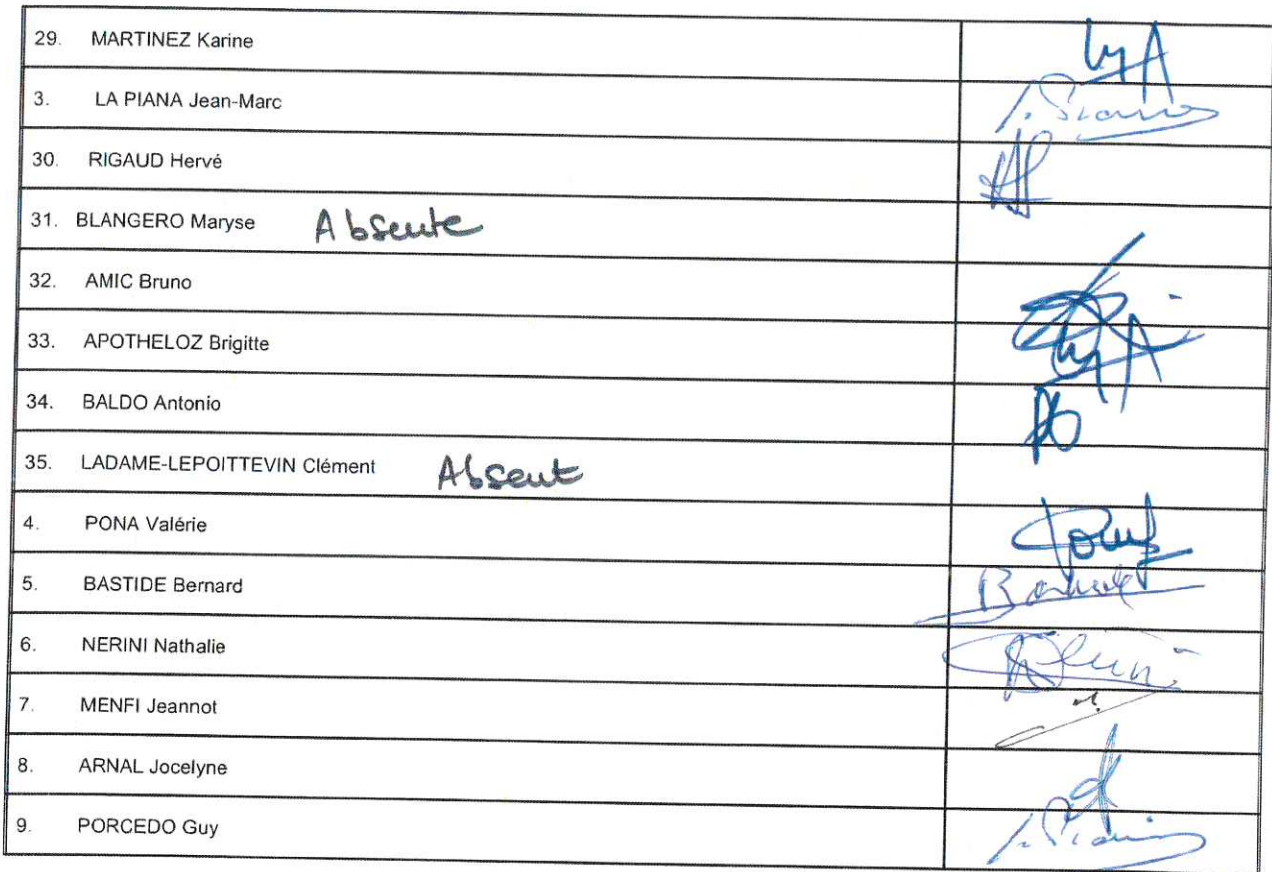 29. MARTINEZ Karine
3. LA PIANA Jean-Marc
30. RIGAUD Hervé
31. BLANGERO Maryse Absente
32. AMIC Bruno
33. APOTHELOZ Brigitte
34. BALDO Antonio
35. LADAME-LEPOITTEVIN Clément Absent
4. PONA Valérie
5. BASTIDE Bernard
6. NERINI Nathalie
7. MENFI Jeannot
8. ARNAL Jocelyne
9. PORCEDO Guy